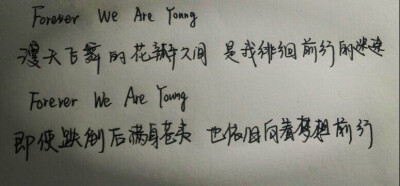 Forever We Are Young
漫天飞舞的花瓣之间 是我徘徊前行的迷途
Forever We Are Young
即使跌倒后满身苍夷 也依旧向着梦想前行